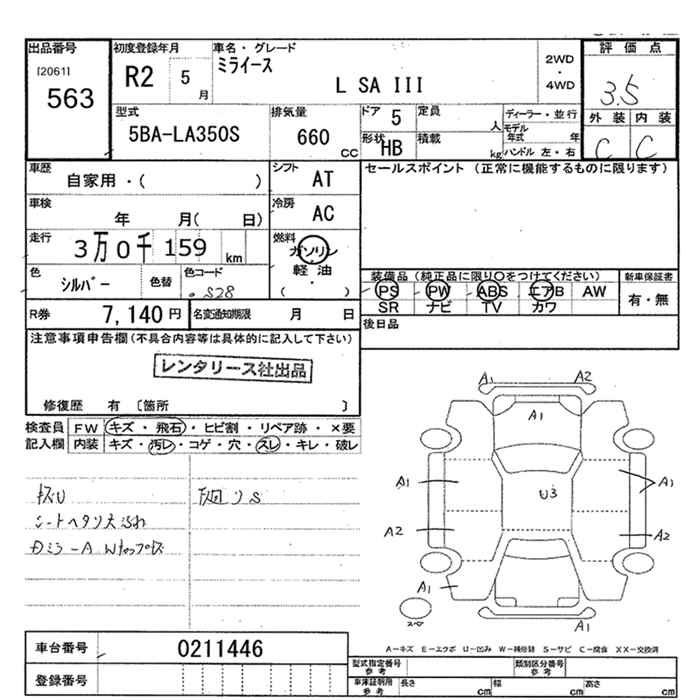 出品番号
[2061]
563
初度登録年月
R2 5 月
車名・グレード
ミライース
L SA III
2WD
・
4WD
評価点
3.5
外装 内装
C C
型式
5BA-LA350S
排気量
660 CC
ドア 5
定員 人
形状 HB
積載 kg
ディーラー・並行
モデル年式 年
ハンドル 左・右
車歴
自家用・( )
シフト AT
セールスポイント (正常に機能するものに限ります)
車検
年 月( 日)
冷房 AC
走行
3万0千159 km
燃料
ガソリン
軽油
( )
色
シルバー
色替
色コード
S28
装備品 (純正品に限り○をつけてください)
PS PW ABS エアB AW
SR ナビ TV カワ
新車保証書
有・無
R券 7,140円
名変通知期限 月 日
後日品
注意事項申告欄(不具合内容等は具体的に記入して下さい)
レンタリース社出品
修復歴 有 〔箇所 〕
検査員記入欄
FW キズ・飛石・ヒビ割・リペア跡・×要
内装 キズ・汚レ・コゲ・穴・スレ・キレ・破レ
A1 A2
A1
A1 A1
U3
A2 A2
A1
A1
A-キズ E-エクボ U-凹み W-補修跡 S-サビ C-腐食 XX-交換済
車台番号 0211446
登録番号
型式指定番号 参考
類別区分番号 参考
車庫証明用 参考
長さ cm 幅 cm 高さ cm